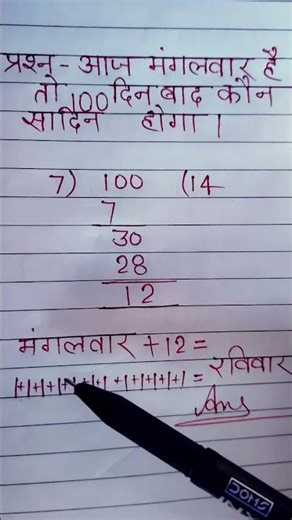 प्रश्न - आज मंगलवार है
तो 100 दिन बाद कौन
सा दिन होगा ।
7) 100 (14
7
30
28
12
मंगलवार + 12 =
रविवार
= 
Ans
DOMS